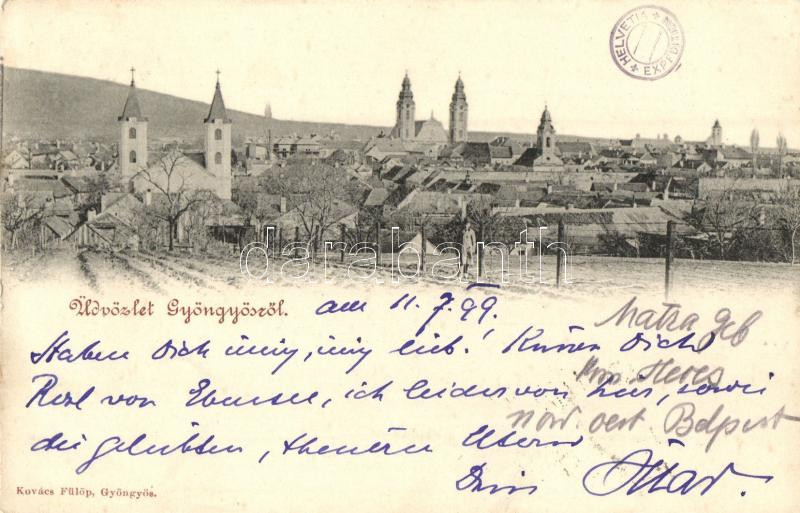 HELVETIA
EXPED
darabanth
Üdvözlet Gyöngyösről. am 11.7.99.
Haben Dich innig, innig lieb! Küssen Dich
Resl von Ebensee, ich leider von hier, sowie
die geliebten, theuren Eltern
Dein Ottar.
Matra geb
Heves
nord ost Bdpest
Kovács Fülöp, Gyöngyös.